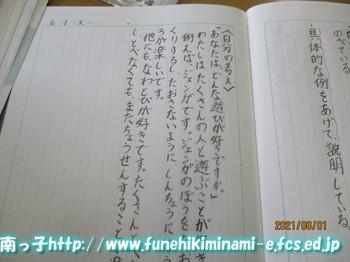 のべている。
具体的な例をあげて、説明している。
〈自分の考え〉
「あなたは、どんな遊びが好きですか。」
わたしはたくさんの人と遊ぶことが
例えば、ジェンガです。ジェンガのぼうを
くりするし、たおさないように、しんちょうに
ろが楽しいです。
他にも、なわとびが好きです。たくさん
しとべなくても、またちょうせんすること
6-1-
2021/06/01
南っ子http://www.funehikiminami-e.fcs.ed.jp